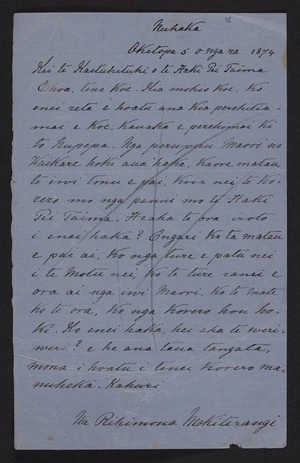 Nuhaka
Oketopa 5 o nga ra 1874
Kei te Kaituhituhi o te Haki Pei Taima
E hoa, tena koe. Kia mohio koe, ko
enei reta e hoatu ana kia perehitia
mai e koe, kauaka e perehingi ki
to Nupepa. Nga purupuru Maori no
Waikare hoki aua haka, kaore matau
te iwi tonu e pai, koia nei te ko-
rero mo nga panui mo te Haki
Pei Taima. He aha te ora i roto
i enei haka? Engari ko ta matau
e pai ai, ko nga ture e patu nei
i te Motu nei, ko te ture ranei e
ora ai nga iwi Maori, ko te mate
ko te ora, ko nga korero hou ho-
ki. Ko enei haka, hei aha te weri-
weri? e he ana taua tangata,
mona i hoatu i tenei korero ma-
nuheka. Kahuri
Na Rihimona Mokiterangi